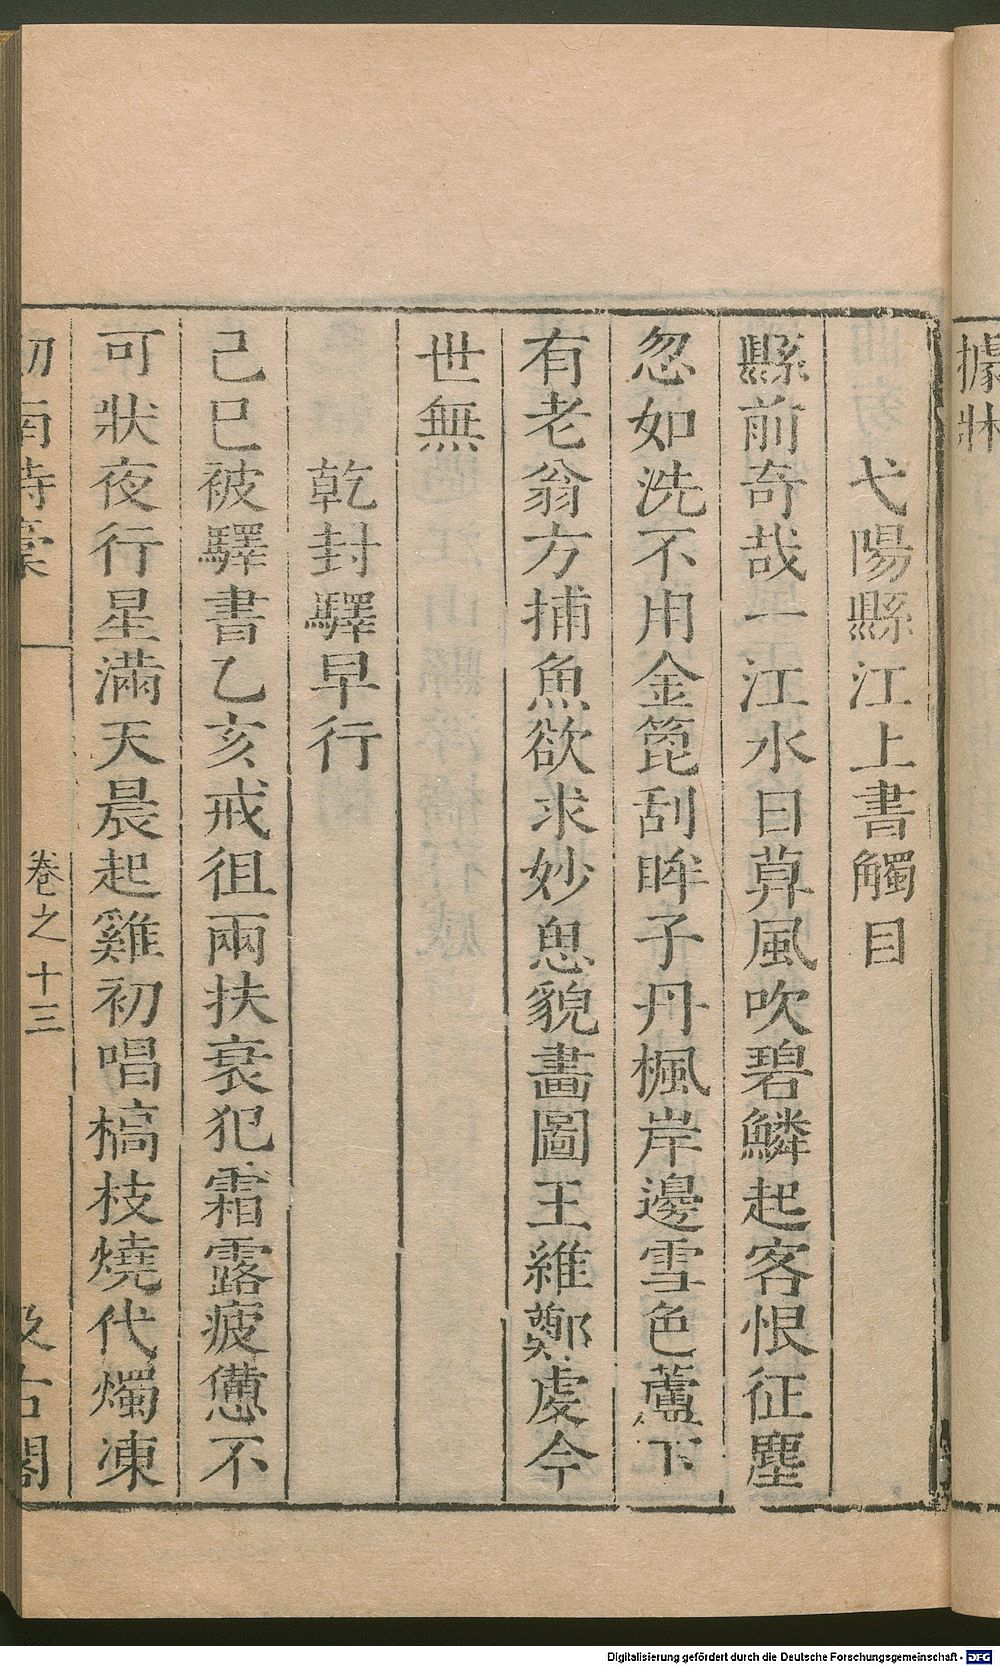 據牀
弋陽縣江上書觸目
縣前奇哉一江水日葬風吹碧鱗起客恨征塵
忽如洗不用金篦刮眸子丹楓岸邊雪色蘆下
有老翁方捕魚欲求妙思貌畫圖王維鄭虔今
世無
乾封驛早行
己巳被驛書乙亥戒徂兩扶衰犯霜露疲憊不
可狀夜行星滿天晨起雞初唱槁枝燒代燭凍
劒南詩稾 卷之十三 汲古閣
Digitalisierung gefördert durch die Deutsche Forschungsgemeinschaft - DFG